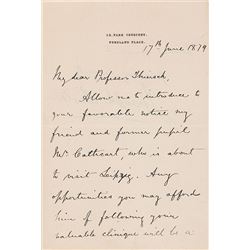 12, PARK CRESCENT,
PORTLAND PLACE.
17th June 1879
My dear Professor Thiersch,
Allow me to introduce to
your favorable notice my
friend and former pupil
Mr. Cathcart, who is about
to visit Leipzig. Any
opportunities you may afford
him of following your
valuable clinique will be a